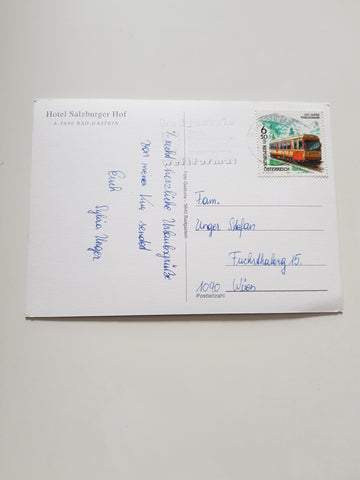 Hotel Salzburger Hof
A-5640 BAD GASTEIN
herzliche Urlaubsgrüße
Von meiner Kur sendet
Euch
Sylvia Unger
Foto Gasteung · 5640 Badgastein
6
50
ÖSTERREICH
Fam.
Unger Stefan
Fuchsthalerg 15.
1090 Wien
Postleitzahl